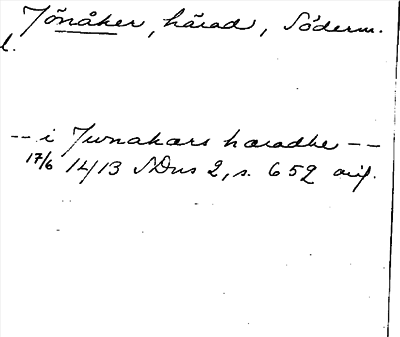 Jönåker, härad, Söderm.
l.
-- i Junakars haradhe --
17/6 1413 SDns 2, s. 652 avs.